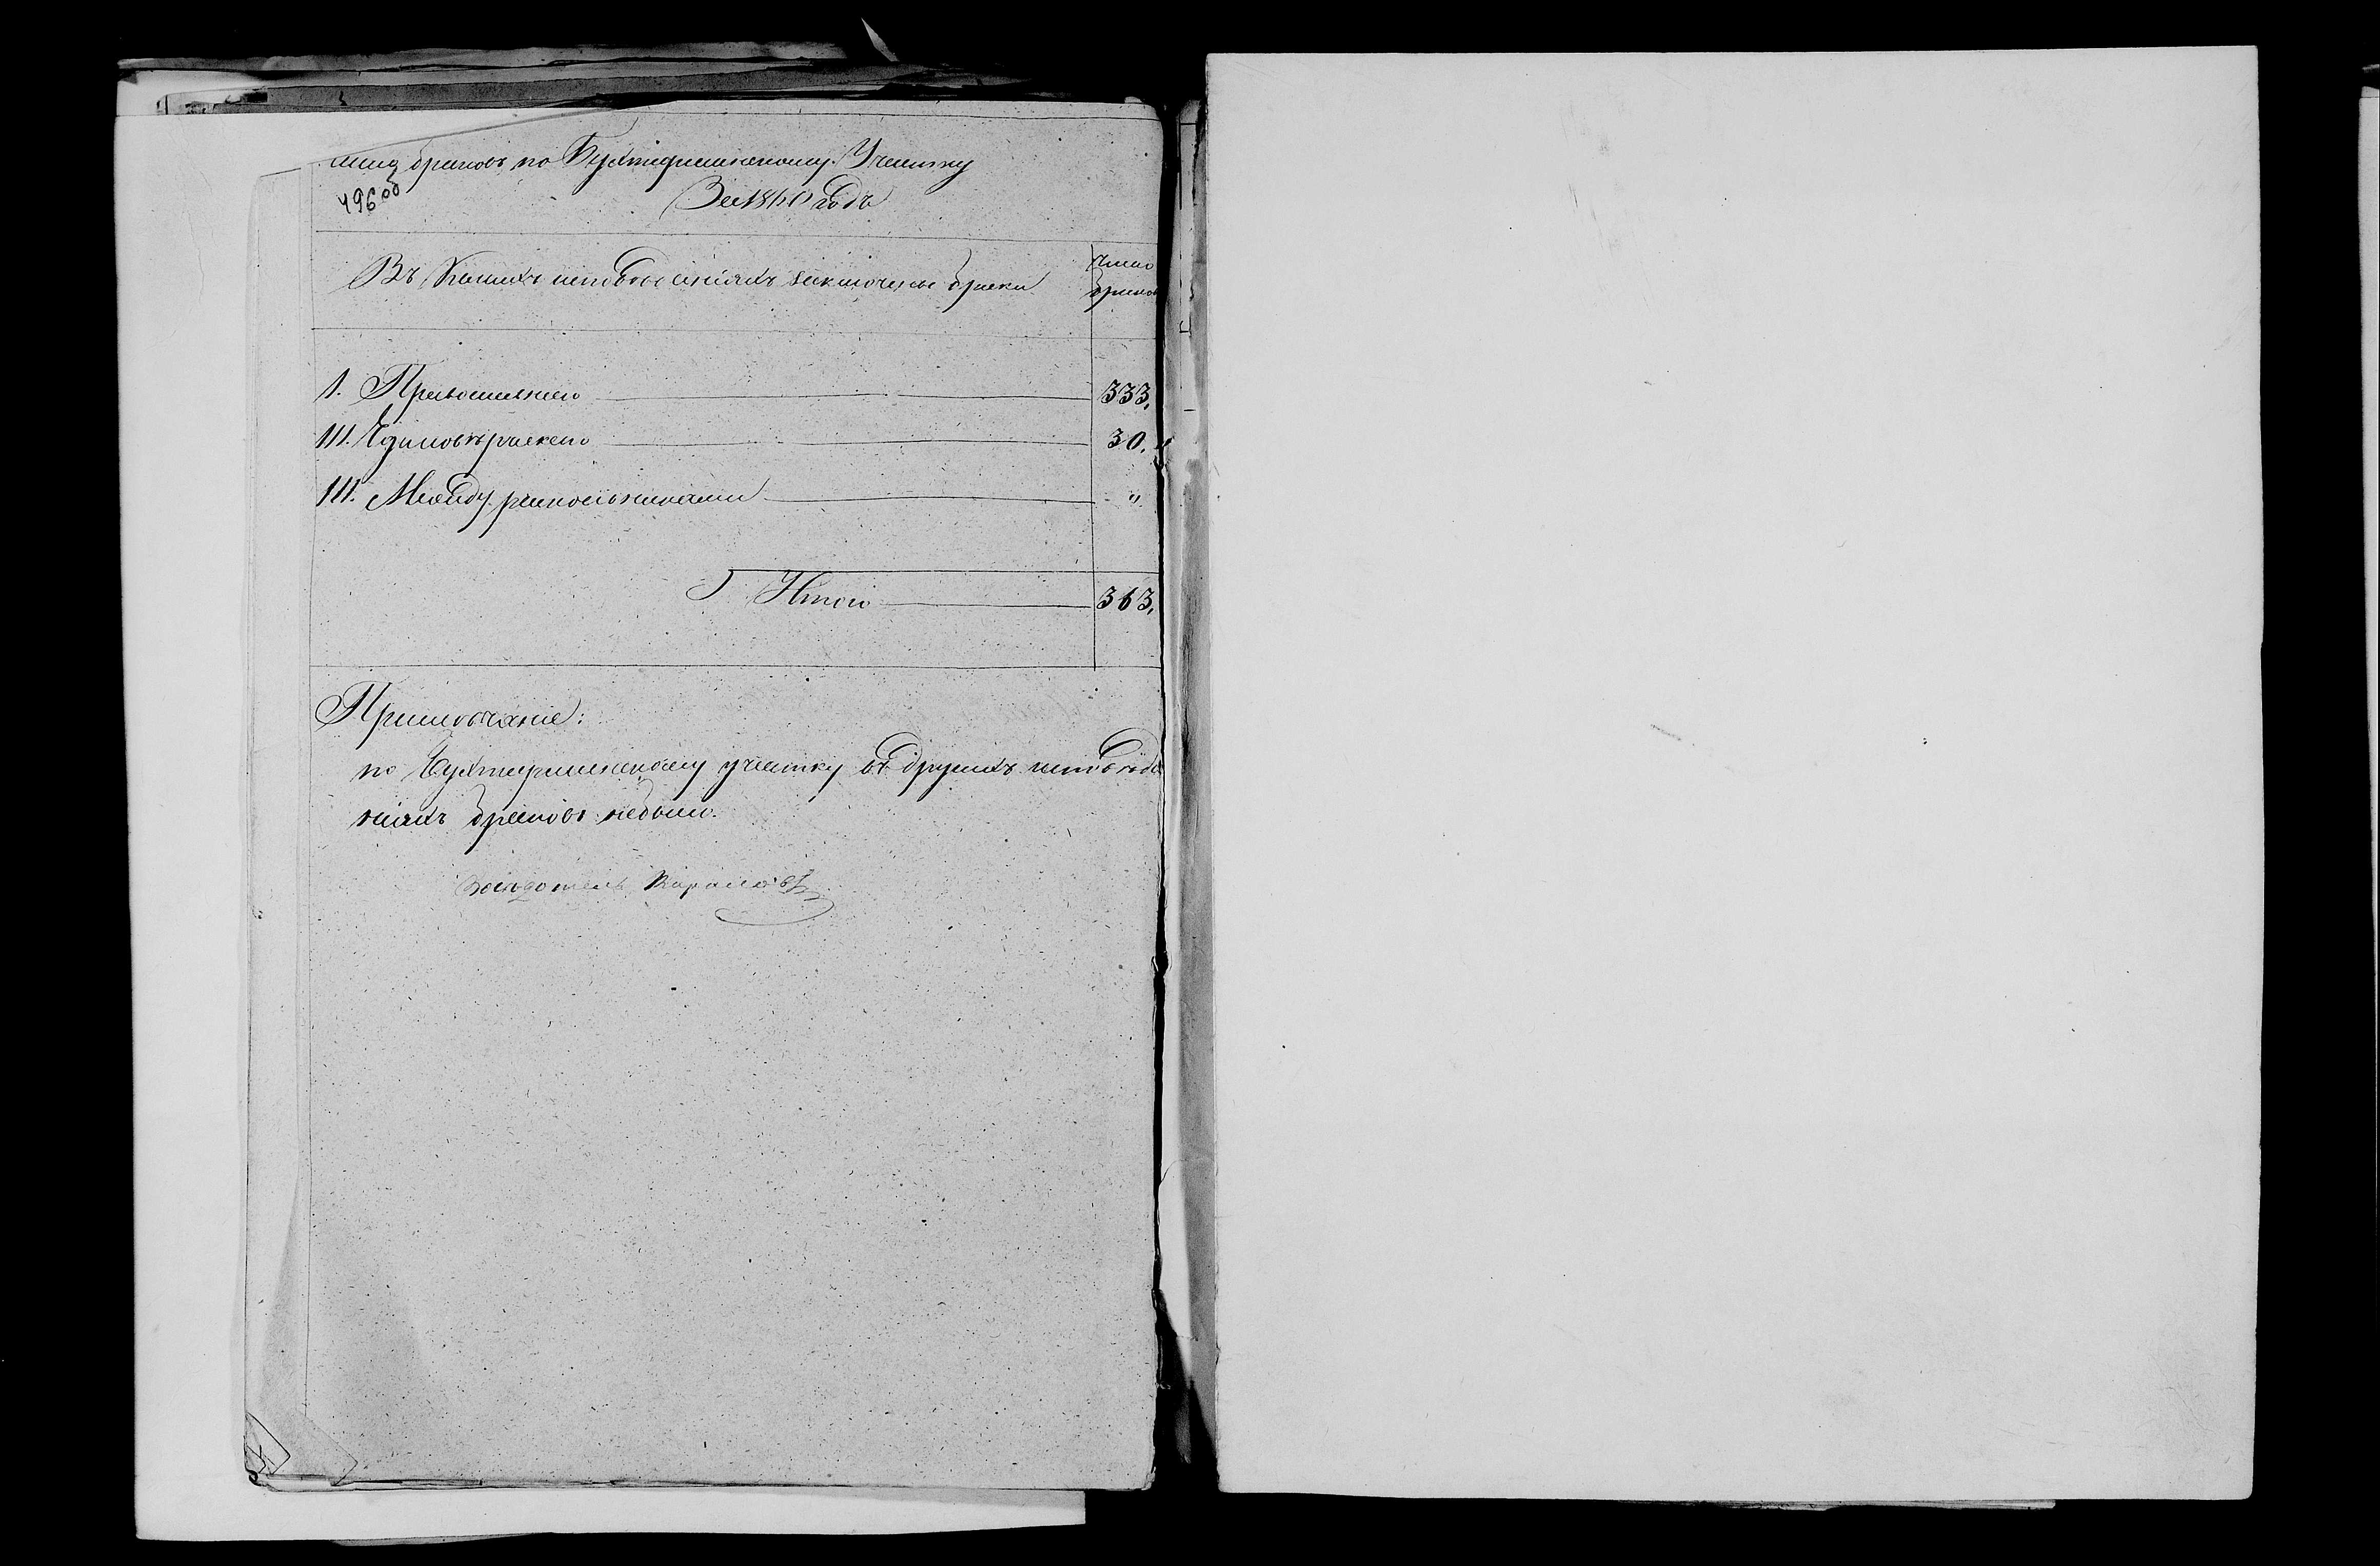 браковъ по Бухтарминскому Участку
496 об
За 1860 годъ
Въ Какихъ исповѣданіяхъ заключены браки
Число
браковъ
I. Православнаго 333.
III. Единовѣрческаго 30.
III. Между раскольниками "
Итого 363.
Примѣчаніе:
по Бухтарминскому участку въ другихъ исповѣда
ніяхъ браковъ небыло.
Засѣдатель